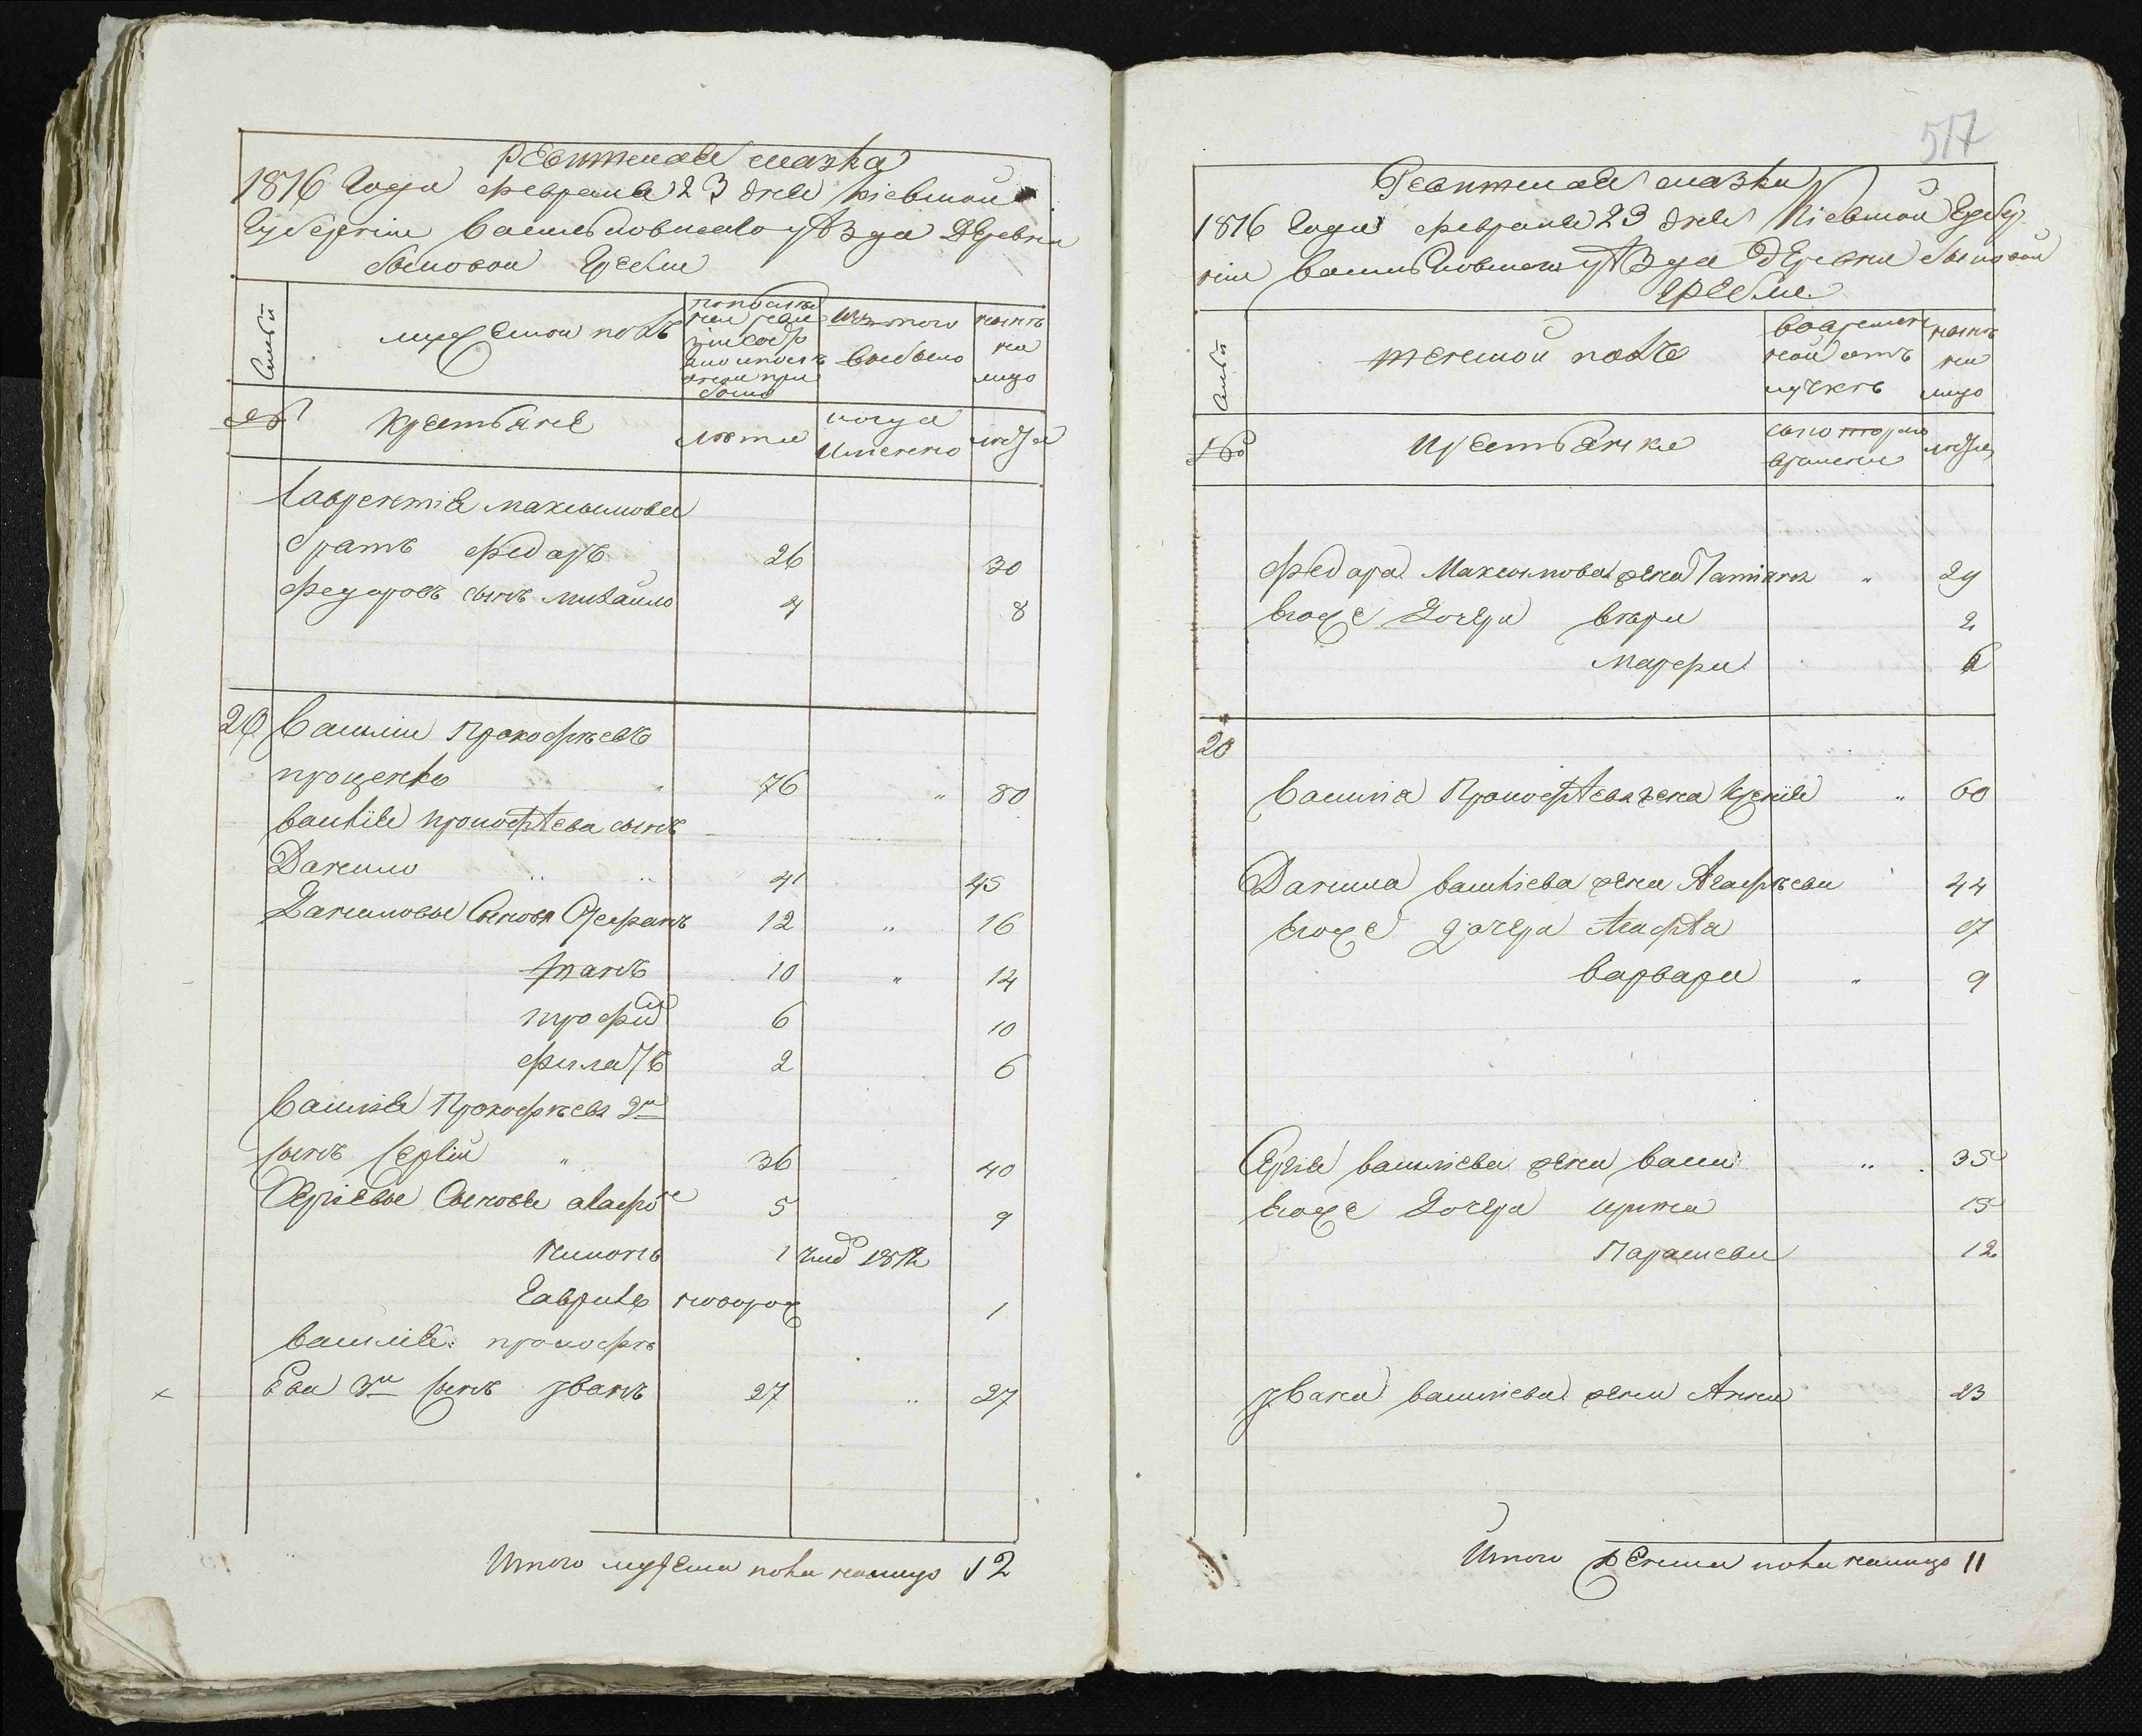 Ревизская сказка
1816 Года февраля 23 дня Кіевской
Губерніи васильковскаго уѣзда Деревни
Сыновой Гребли
Семьи
мужеской полъ
по послѣдней ревизіи состояло и послѣ оной прибыло
Изъ того выбыло
нынѣ на лицо
№
Крестьяне
лѣта
когда Именно
лѣта
Лаврентія максимова
братъ федоръ 26 30
федоровъ сынъ михайло 4 8
20 Василій Прокофьевъ
проценко 76 " 80
василія прокофѣева сынъ
Данило 41 45
Даниловы Сыновя Стефанъ 12 " 16
Иванъ 10 " 14
трофим 6 10
филатъ 2 6
Василія Прокофьева 2й
сынъ Сергій " 36 40
Сергіевы Сыновья 5 9
1 1812
Гаврило новорож 1
василія прокофь
ева 3й сынъ Иванъ 27 " 27
Итого мужеска пола налицо 12
517
Ревизская сказка
1816 Года февраля 23 дня Кіевской Губер
ніи васильковскаго уѣзда деревни Сыновой
гребли
Семьи
женской полъ
во временной отлучкѣ
нынѣ на лицо
№
Крестьянки
съ котораго времени
лѣта
федора Максимова жена Татіяна " 29
Егоже Дочери вѣра 2
Марфа 6
20
Василія Прокофѣева жена Ксенія " 60
Данила василіева жена Агафьева 44
Егоже дочери Агафѣя 17
варвара " 9
Сергія василіева жена васи " 35
Егоже Дочери ирина 15
Парасцева 12
Ивана василіева жена Анна 23
Итого женска пола налицо 11